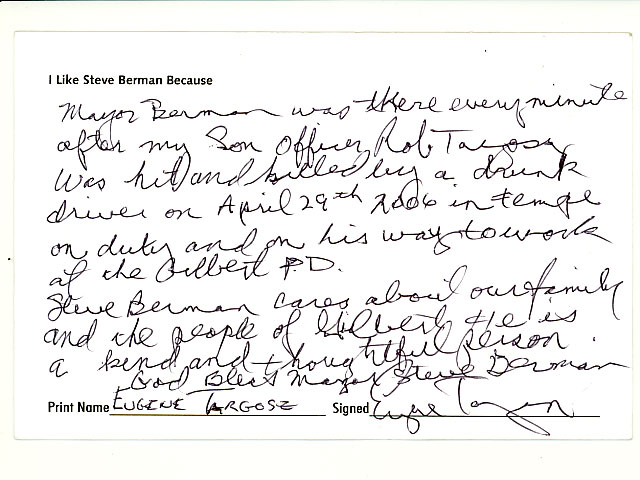 I Like Steve Berman Because
Mayor Berman was there every minute
after my Son Officer Rob Targosz
was hit and killed by a drunk
driver on April 29th 2006 in tempe
on duty and on his way to work
at the Gilbert P.D.
Steve Berman cares about our family
and the people of Gilbert He is
a kind and thoughtful person.
God Bless Mayor Steve Berman
Print Name EUGENE TARGOSZ Signed